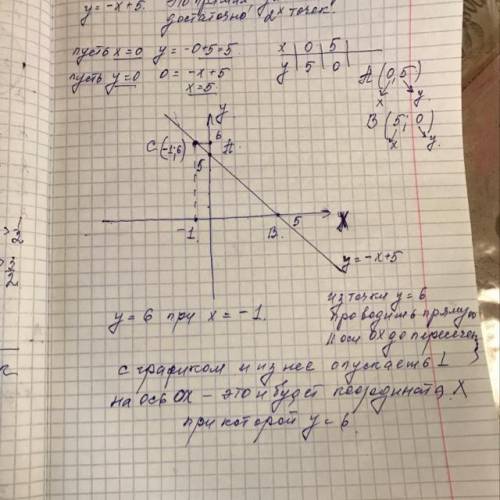 y = -x+5. Это прямая
достаточно 2х точек.
пусть x=0 y = -0+5=5.
x 0 5
y 5 0
пусть y=0 0 = -x+5
x=5.
A (0,5)
x y.
B (5; 0)
x y.
y
C(-1;6) 6
5 A.
-1 B. 5 X
y = -x+5
y = 6 при x = -1.
из точки y = 6
проводить прямую
|| оси OX до пересечен
с графиком и из нее опускаеть ⊥
на ось OX – это и будет координата X
при которой y = 6.